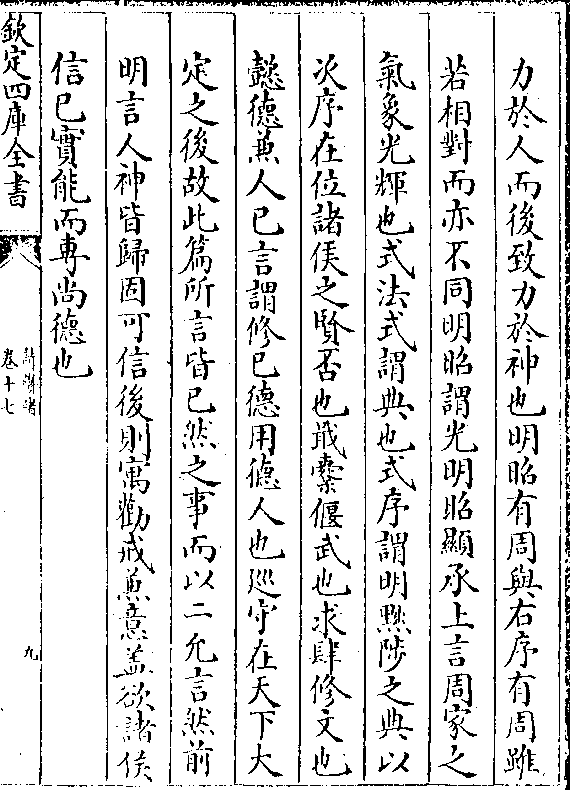 力於人而後致力於神也明昭有周與右序有周雖
若相對而亦不同明昭謂光明昭顯承上言周家之
氣象光輝也式法式謂典也式序謂明黜陟之典以
次序在位諸侯之賢否也戢櫜偃武也求肆修文也
懿德兼人已言謂修已德用德人也巡守在天下大
定之後故此篇所言皆已然之事而以二允言然前
明言人神皆歸固可信後則寓勸戒兼意盖欲諸侯
信已實能而専尚德也
欽定四庫全書
詩濳諸
卷十七
九